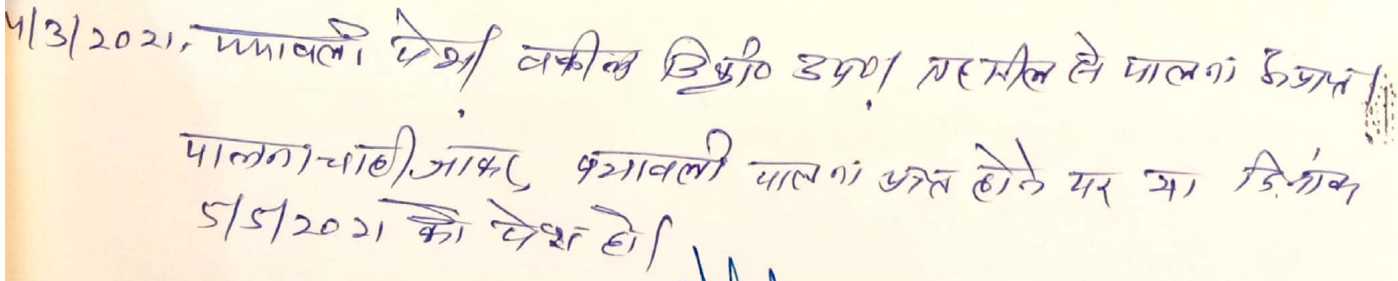 4/3/2021. पत्रावली पेश। वकील डिक्री० उप०। तहसील से पालना
पालना चाही जाकर पत्रावली पालना प्राप्त होने पर या दिनांक
5/5/2021 को पेश हो।